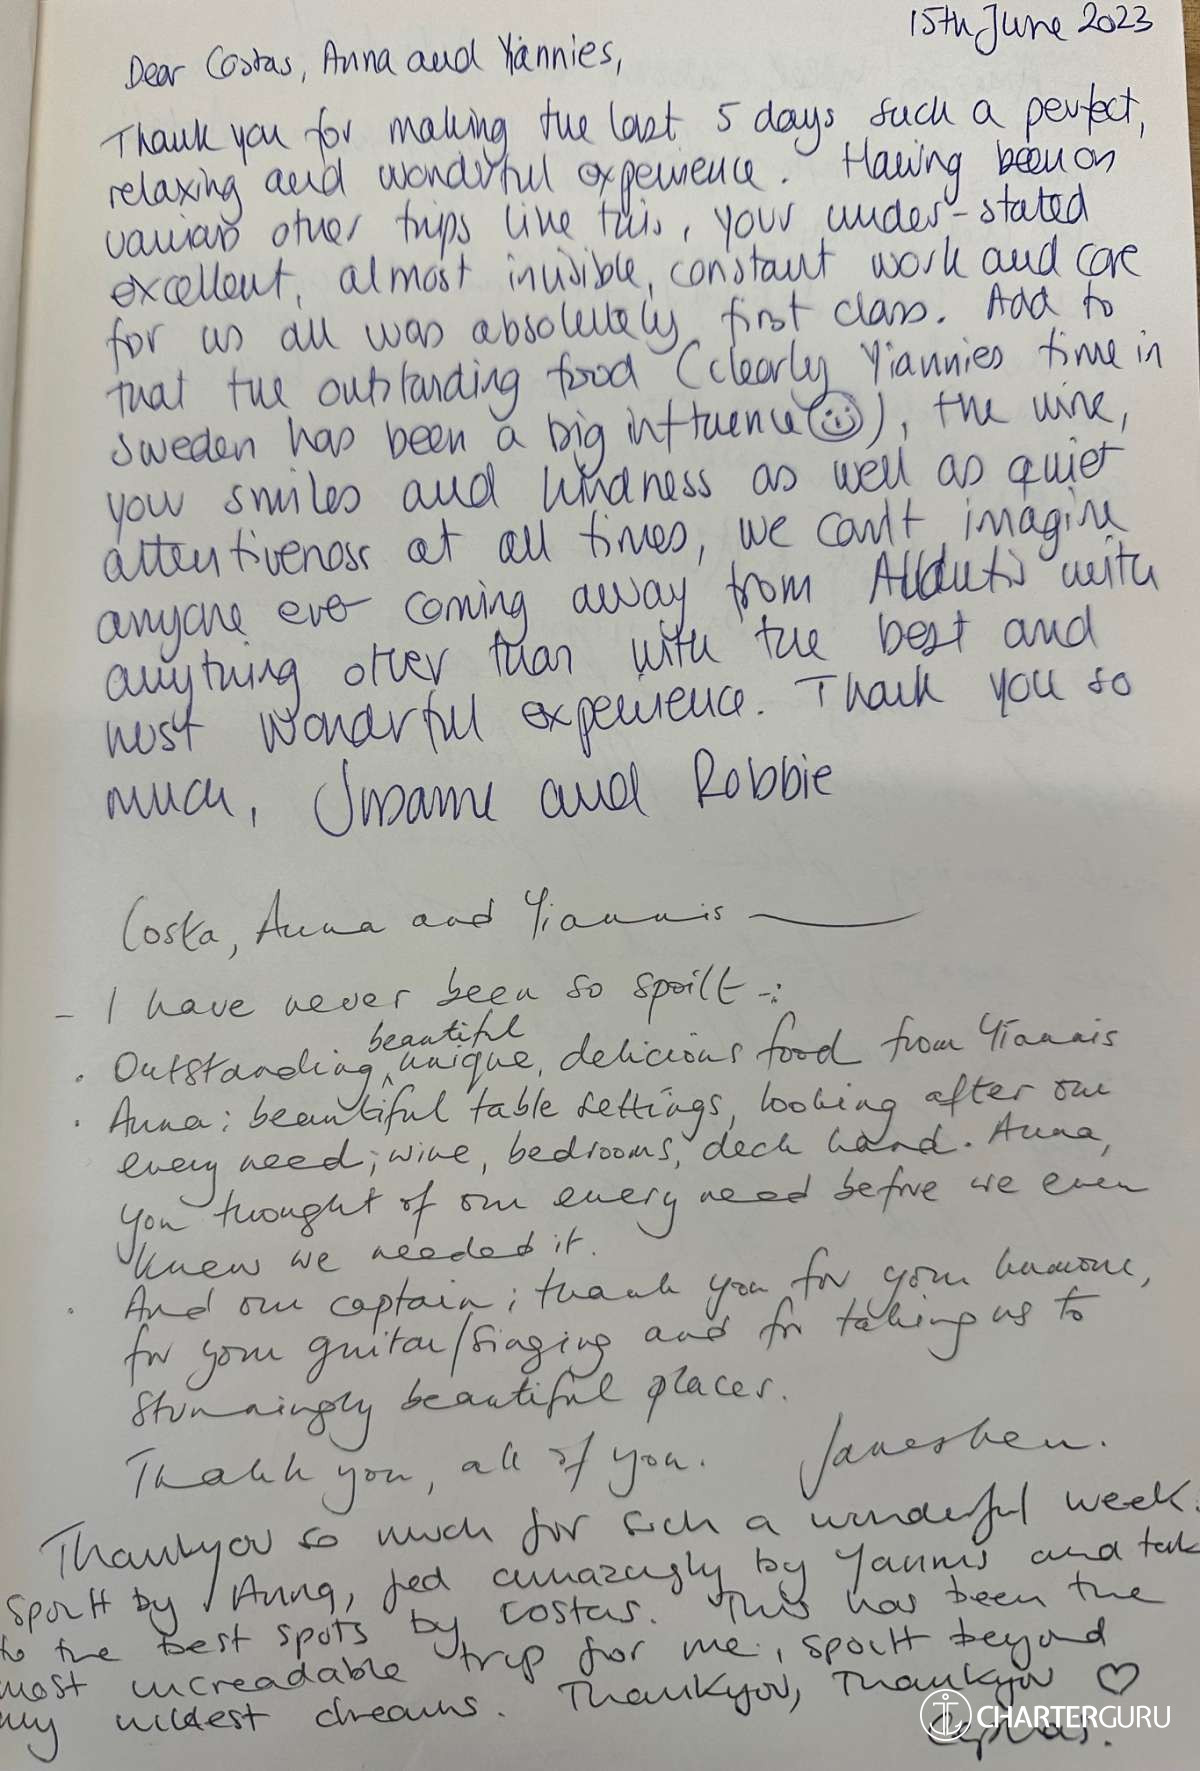 15th June 2023
Dear Costas, Anna and Yiannies,
Thank you for making the last 5 days such a perfect,
relaxing and wonderful experience. Having been on
various other trips like this, your under-stated
excellent, almost invisible, constant work and care
for us all was absolutely first class. Add to
that the outstanding food (clearly Yiannies time in
Sweden has been a big influence ☺), the wine,
your smiles and kindness as well as quiet
attentiveness at all times, we can't imagine
anyone ever coming away from with
anything other than with the best and
most wonderful experience. Thank you so
much, and Robbie
Costa, Anna and Yiannis
- I have never been so spoilt -:
beautiful
· Outstanding, unique, delicious food from Yiannis
· Anna: beautiful table settings, looking after our
every need; wine, bedrooms, deck hand. Anna,
you thought of our every need before we even
knew we needed it.
· And our captain; thank you for your humour,
for your guitar/singing and for taking us to
stunningly beautiful places.
Thank you, all of you.
Thankyou so much for such a wonderful week.
Spoilt by Anna, fed amazingly by Yannis and tak
to the best spots by Costas. This has been the
most increadable trip for me, spoilt beyond
my wildest dreams. Thankyou, Thankyou ♡
CHARTERGURU